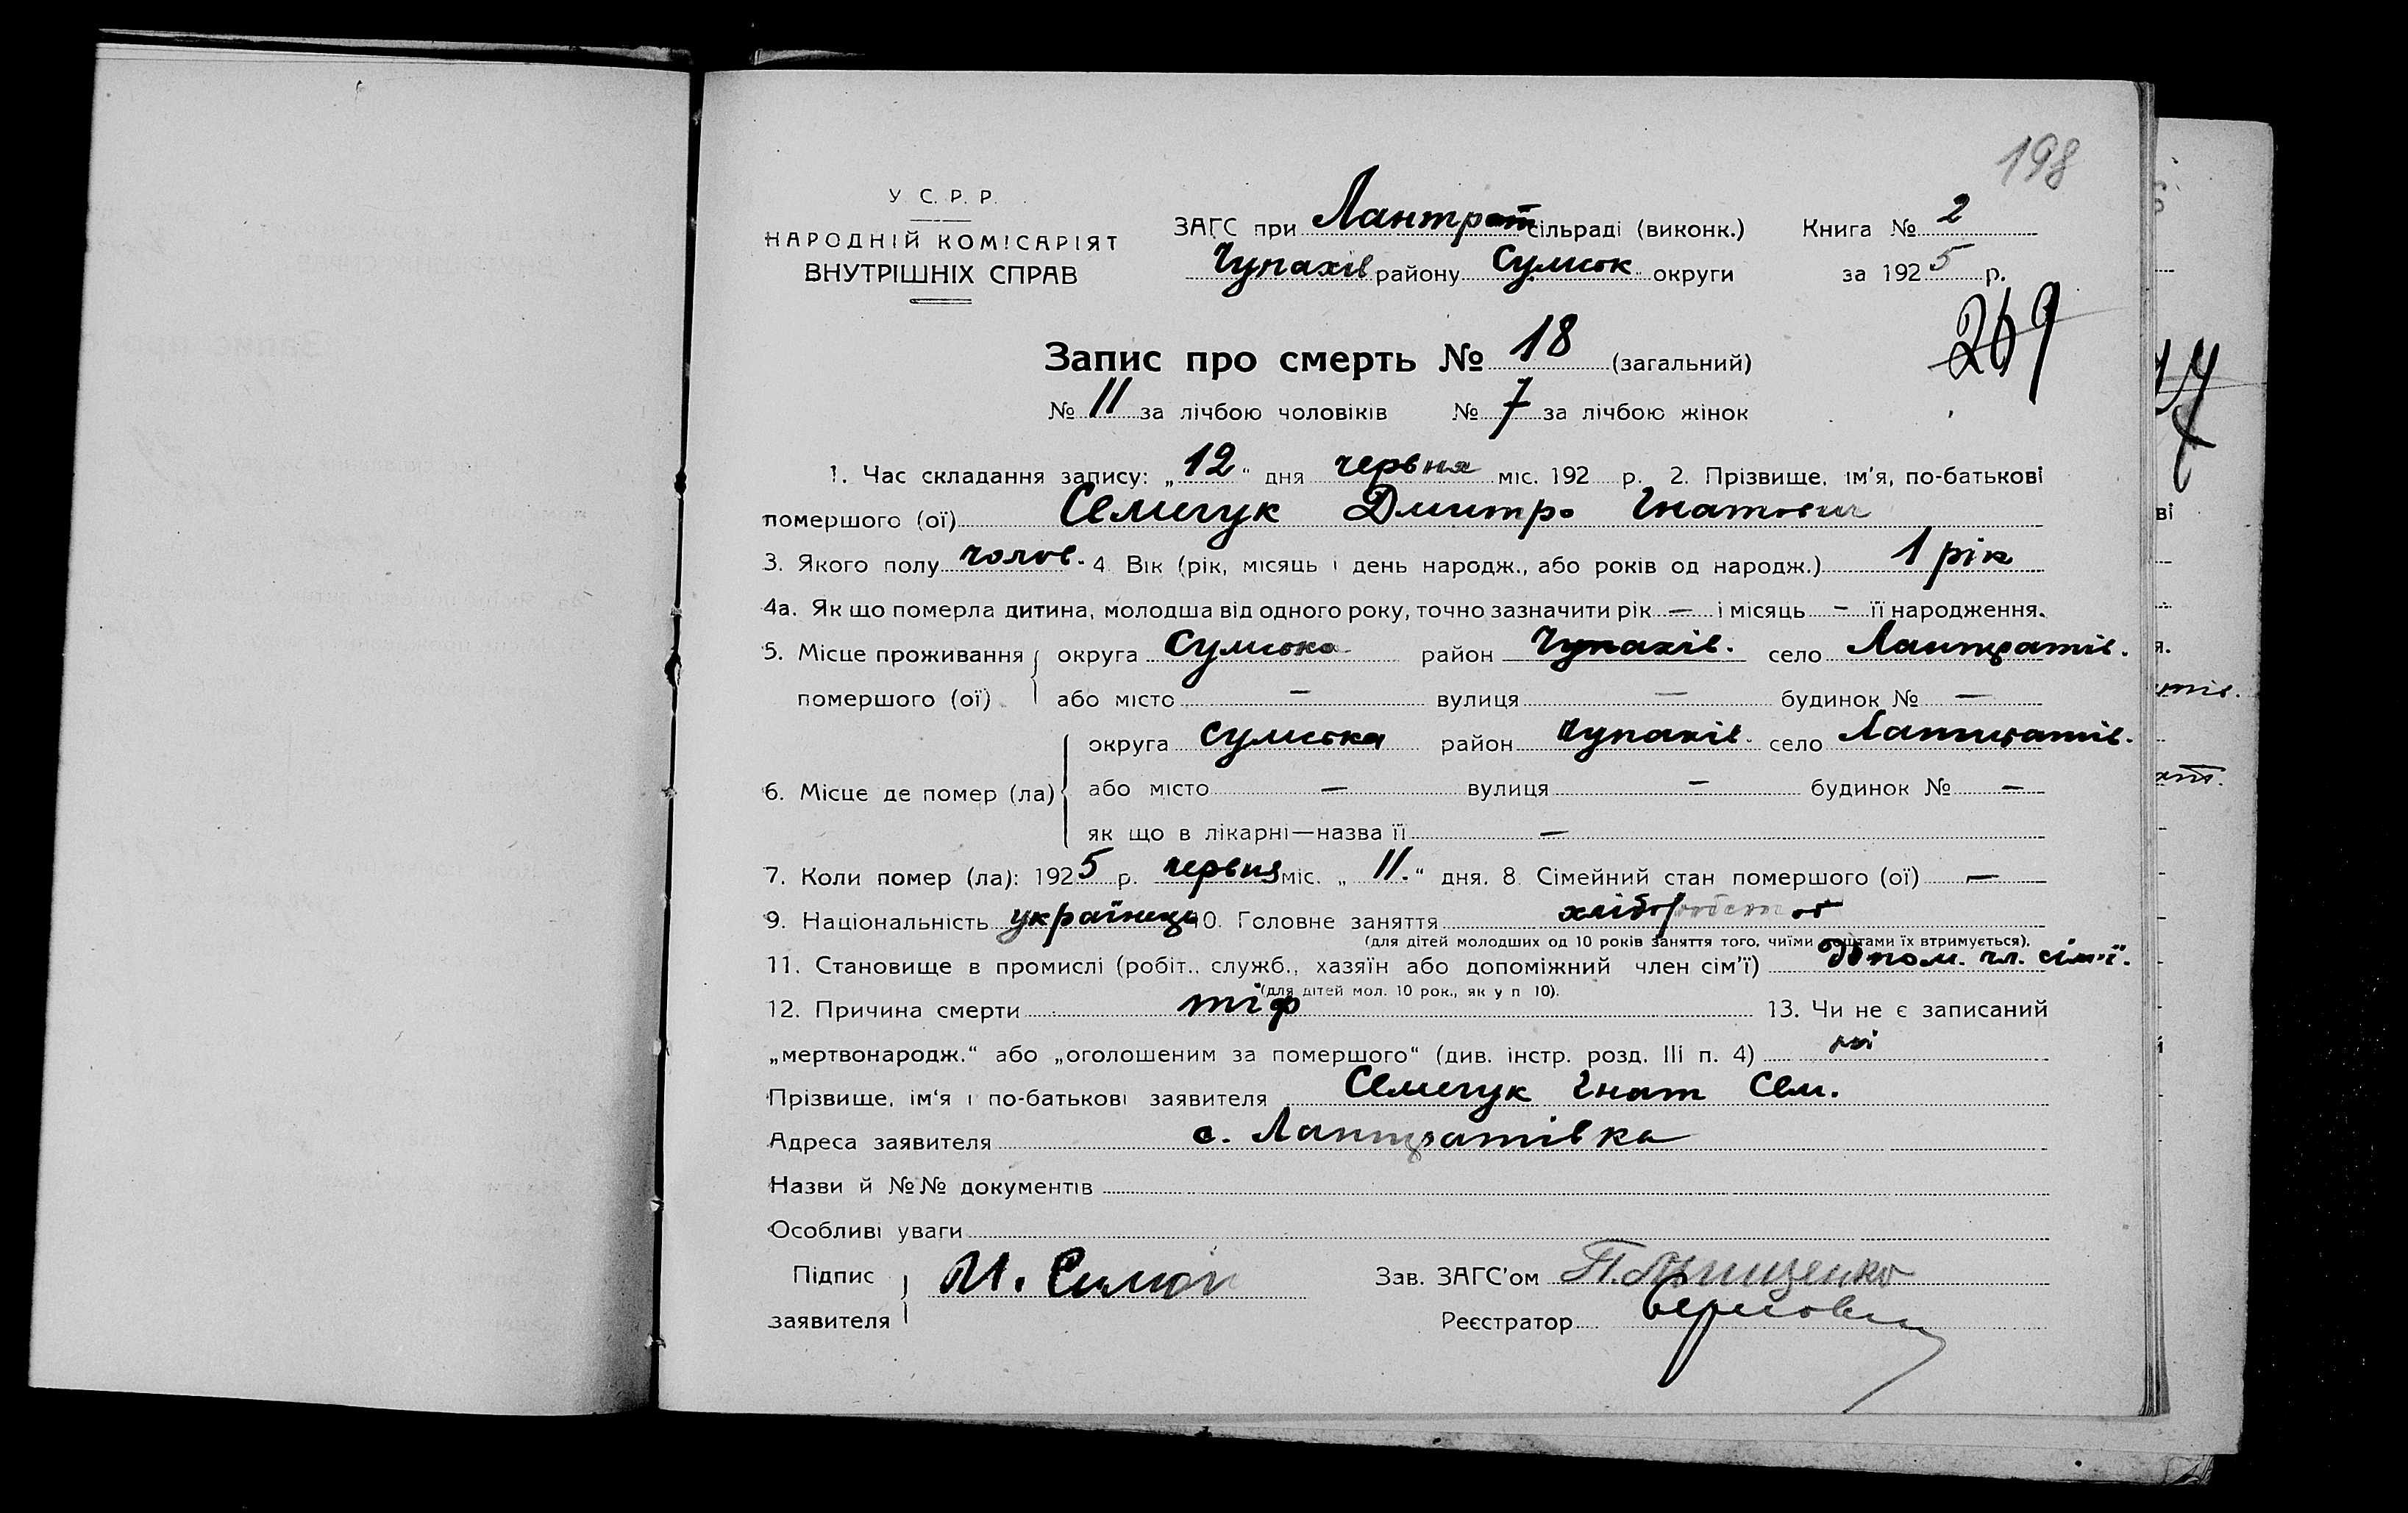 198
У С. Р. Р.
НАРОДНІЙ КОМІСАРІЯТ
ВНУТРІШНІХ СПРАВ
ЗАГС при Лантрат сільраді (виконк.) Книга № 2
Чупахів району Сумськ. округи за 1925 р.
269
Запис про смерть № 18 (загальний)
№ 11 за лічбою чоловіків № 7 за лічбою жінок
1. Час складання запису: „12“ дня червня міс. 192 р. 2. Прізвище, ім'я, по-батькові
помершого (ої) Семичук Дмитро Гнатович
3. Якого полу чолов. 4. Вік (рік, місяць і день народж., або років од народж.) 1 рік
4а. Як що померла дитина, молодша від одного року, точно зазначити рік — і місяць — її народження.
5. Місце проживання округа Сумська район Чупахів. село Лантратів.
помершого (ої) або місто — вулиця — будинок № —
округа Сумська район Чупахів. село Лантратів.
6. Місце де помер (ла) або місто — вулиця — будинок № —
як що в лікарні—назва її —
7. Коли помер (ла): 1925 р. червня міс. „11.“ дня. 8. Сімейний стан помершого (ої) —
9. Національність українець 10. Головне заняття
(для дітей молодших од 10 років заняття того, чиїми коштами їх втримується).
11. Становище в промислі (робіт., служб., хазяїн або допоміжний член сім'ї) допом. чл. сім'ї.
(для дітей мол. 10 рок., як у п 10).
12. Причина смерти тіф 13. Чи не є записаний
„мертвонародж.“ або „оголошеним за помершого“ (див. інстр. розд. III п. 4) ні
Прізвище, ім'я і по-батькові заявителя Семичук Гнат Сем.
Адреса заявителя с. Лантратівка
Назви й №№ документів
Особливі уваги
Підпис
заявителя
Зав. ЗАГС'ом
Реєстратор